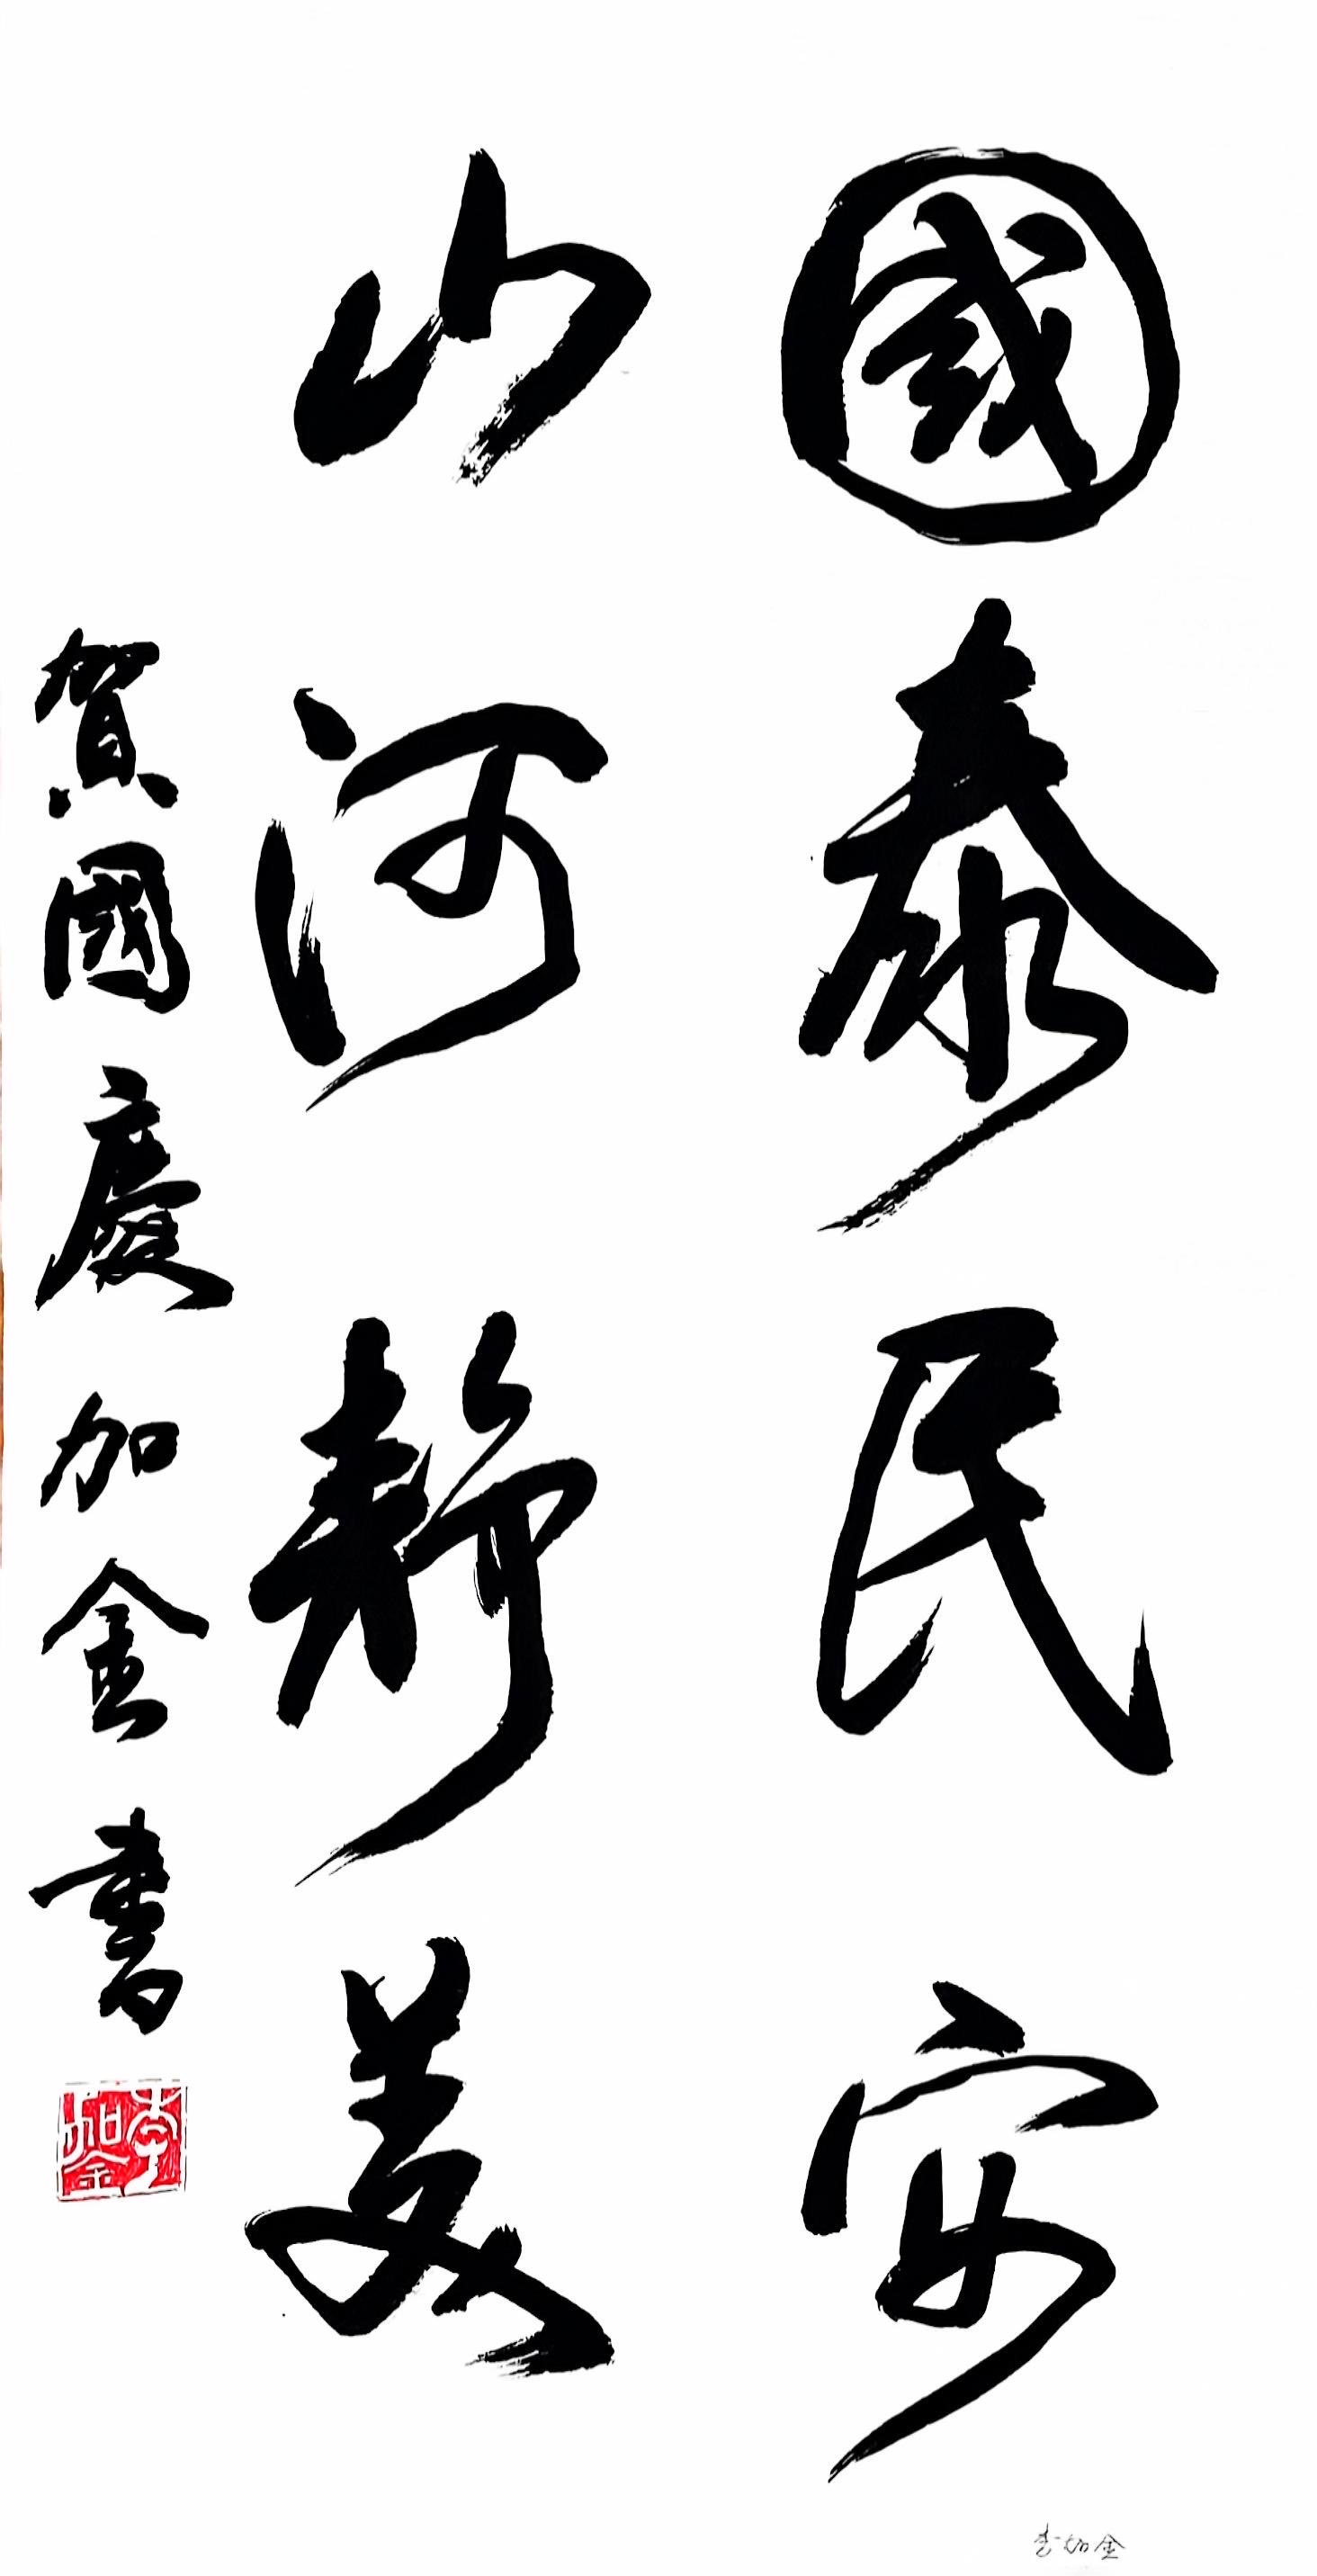 國泰民安
山河靜美
賀國慶 加金書
李加金
李加金